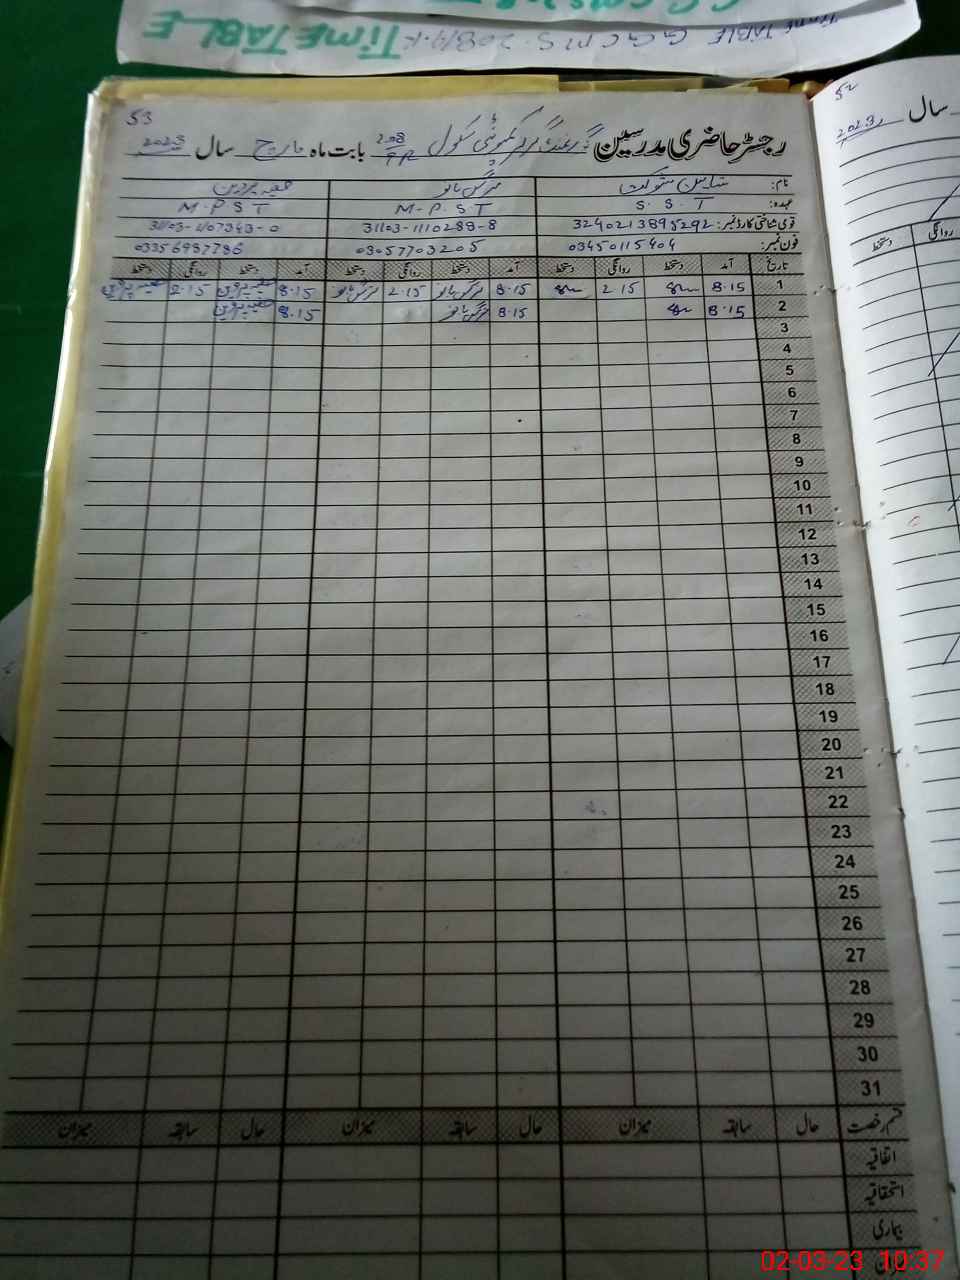 TIME TABLE G.G.C.M.S. 208/T.R
TIME TABLE
53
رجسٹر حاضری مدرسین گورنمنٹ گرلز کمیونٹی سکول 208/TR بابت ماہ مارچ سال 2023
نام: شاہین شوکت نرگس بانو
عہدہ: S.S.T M-P.S.T M.P.S.T
قومی شناختی کارڈ نمبر: 3240213895292 31103-1110288-8 31103-1107343-0
فون نمبر: 03450115404 03057703205 03356987786
تاریخ آمد دستخط روانگی دستخط آمد دستخط روانگی دستخط آمد دستخط روانگی دستخط
1 8.15 2.15 8.15 نرگس بانو 2.15 نرگس بانو 8.15 2.15
2 8.15 8.15 نرگس بانو 8.15
3
4
5
6
7
8
9
10
11
12
13
14
15
16
17
18
19
20
21
22
23
24
25
26
27
28
29
30
31
قسم رخصت حال سابقہ میزان حال سابقہ میزان حال سابقہ میزان
اتفاقیہ
استحقاقیہ
بیماری
میزان
52
سال 2023
روانگی دستخط
02-03-23 10:37